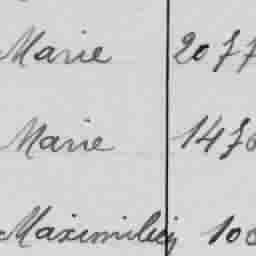 Marie 2077
Marie 147
Maximilien 10